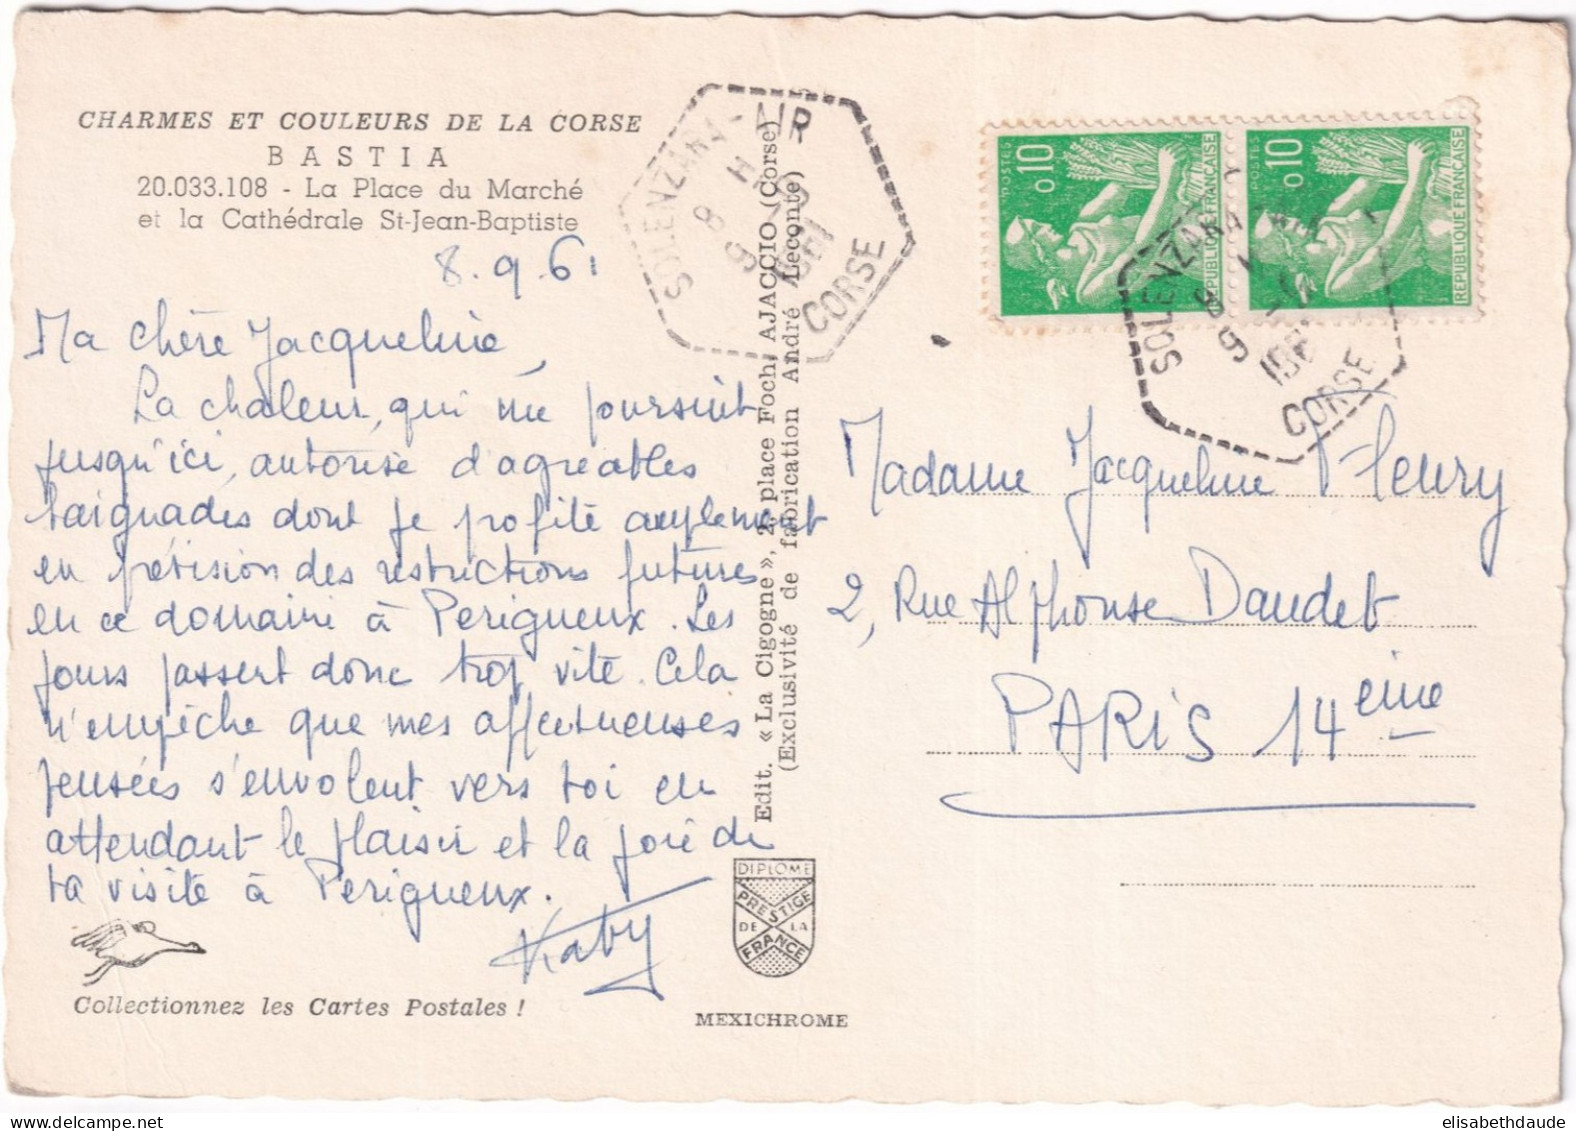 CHARMES ET COULEURS DE LA CORSE
BASTIA
20.033.108 - La Place du Marché
et la Cathédrale St-Jean-Baptiste
8.9.61
Ma chère Jacqueline,
La chaleur, qui me poursuit
jusqu'ici, autorise d'agréables
baignades dont je profite amplement
en prévision des restrictions futures
en ce domaine à Perigueux. Les
jours passent donc trop vite. Cela
n'empêche que mes affectueuses
pensées s'envolent vers toi en
attendant le plaisir et la joie de
ta visite à Perigueux.
Kaby
Collectionnez les Cartes Postales !
Edit. « La Cigogne », 2, place Foch, AJACCIO (Corse)
(Exclusivité de fabrication André Leconte)
DIPLOME
PRESTIGE
DE LA
FRANCE
MEXICHROME
SOLENZARA-AIR
8 H
9-9
1961
CORSE
POSTES
0,10
REPUBLIQUE FRANÇAISE
POSTES
0,10
REPUBLIQUE FRANÇAISE
SOLENZARA
CORSE
Madame Jacqueline Fleury
2, Rue Alphonse Daudet
PARIS 14ème
elisabethdaude